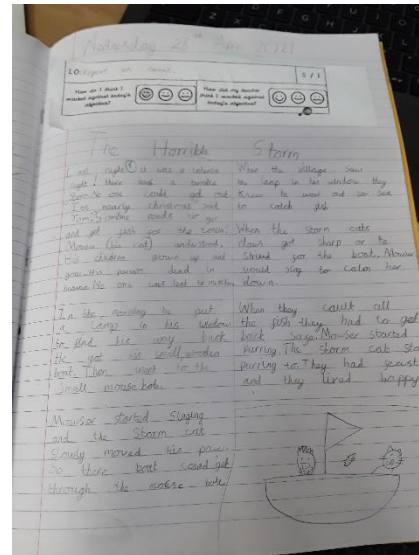 Wednesday 28th Apr 2021
LO: Report an event.
S / I
How do I think I worked against today's objective?
How did my teacher think I worked against today's objective?
The Horrible Storm
Last night it was a
night, there was a
No one could get out
It's nearly christmas and
Tom, someone needs to go
and get fish for the town.
Mowser (his cat) understands.
His children grown up and
gone. His parents dead in
No one was left to
In the evening he put
a lamp in his widow
to find his way back
He got his small wooden
boat. Then went to the
small mouse hole.
Mowser started singing
and the storm cat
slowly moved his paw.
So there boat could get
through the mouse hole.
When the village saw
the lamp in his window they
knew he went out to sea
to catch fish
When the storm cats
claws got sharp or he
the boat. Mowser
would sing to calm her
down.
When they caught all
the fish they had to get
back Mowser started
purring. The storm cat
purring to. They had
and they lived happy